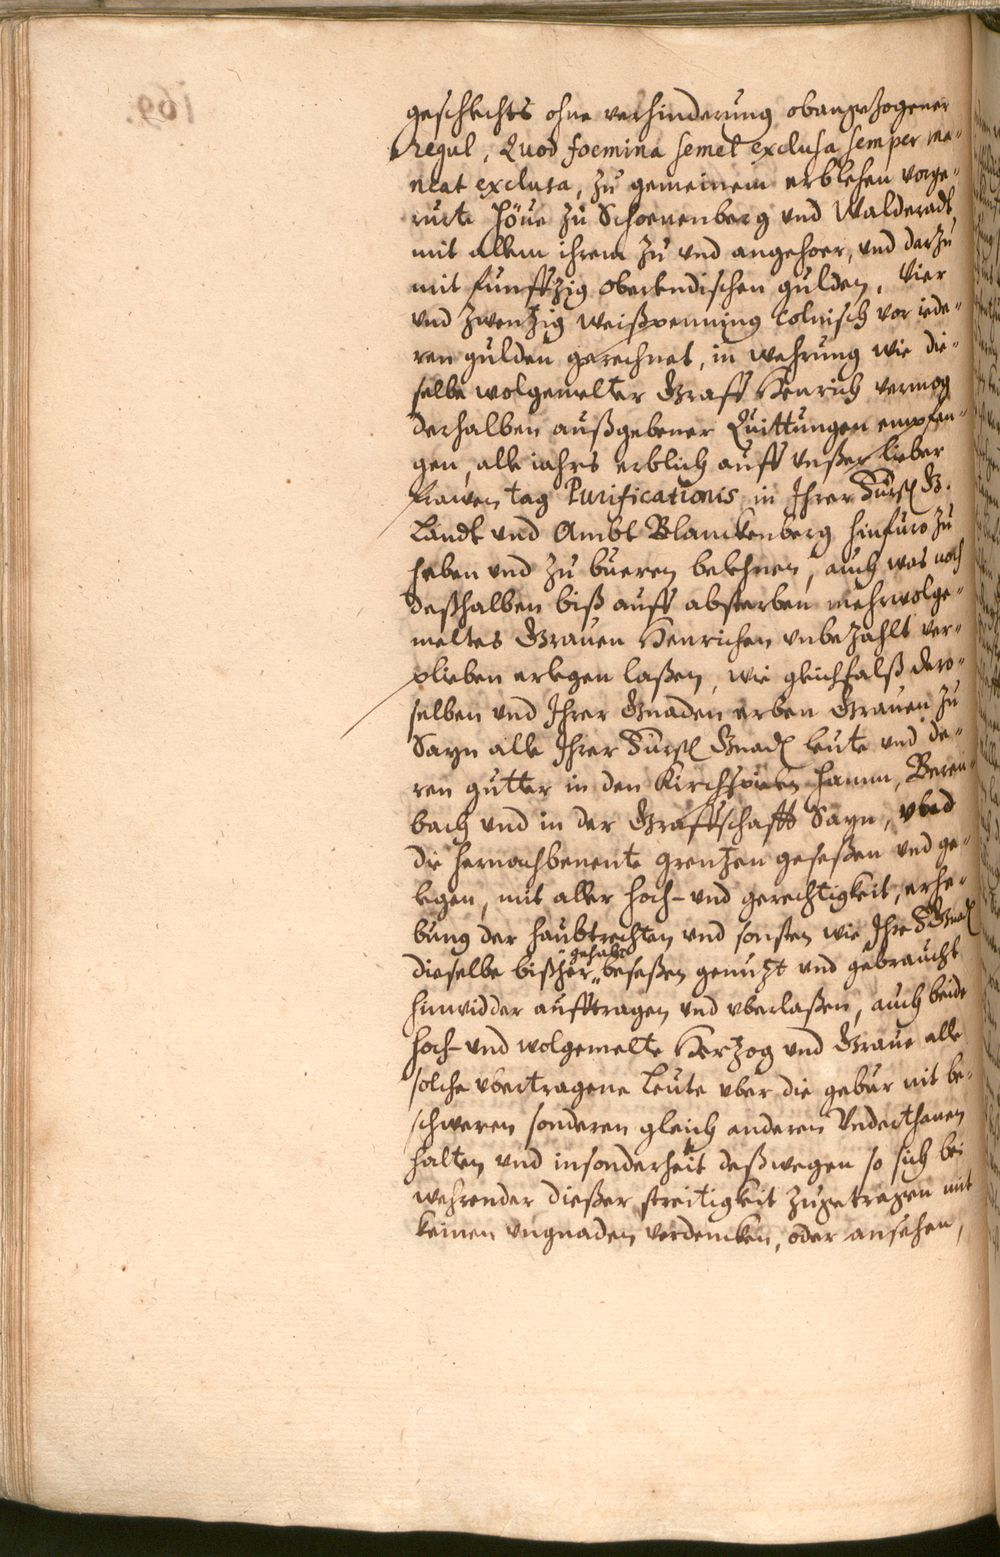 geschlechts ohne verhinderung obangezogener
regul, Quod foemina semel exclusa semper ma-
neat exclusa, zu gemeinem erblehen vorge-
rurte Höue zu Schoenenberg vnd Walderadt,
mit allem ihrem zu vnd angehoer, vnd darzu
mit funffzig oberlendischen gulden, Vier
vnd zwenzig weißpenning Colnisch vor iede-
ren gulden gerechnet, in wehrung wie die-
selbe wolgemelter Graff Henrich vermog
derhalben außgebener Quittungen empfan-
gen, alle iahrs erblich auff vnßer lieber
frawen tag Purificationis in Ihrer Furstl G.
Landt vnd Ambt Blanckenberg hinfuro zu
heben vnd zu bueren belehnen, auch was noch
deßhalben biß auff absterben mehrwolge-
meltes Grauen Henrichen vnbezahlt ver-
plieben erlegen laßen, wie gleichfalß dero-
selben vnd Ihrer Gnaden erben Grauen zu
Sayn alle Ihrer Furstl Gnadl leute vnd de-
ren gutter in den Kirchspielen Hamm, Beren-
bach vnd in der Graffschafft Sayn, vbed
die hernachbenente grentzen geseßen vnd ge-
legen, mit aller hoch- vnd gerechtigkeit, erhe-
bung der haubtrechten vnd sonsten wie Ihre FGnadl
gehabt
dieselbe bißher beseßen genutzt vnd gebraucht
hinwidder aufftragen vnd vberlaßen, auch beide
hoch- vnd wolgemelte Herzog vnd Graue alle
solche vbertragene Leute vber die gebur nit be-
schweren sonderen gleich anderen Vnderthanen
halten vnd insonderheit deßwegen so sich bei
wehrender dießer streitigkeit zugetragen mit
keinen vngnaden verdencken, oder ansehen,